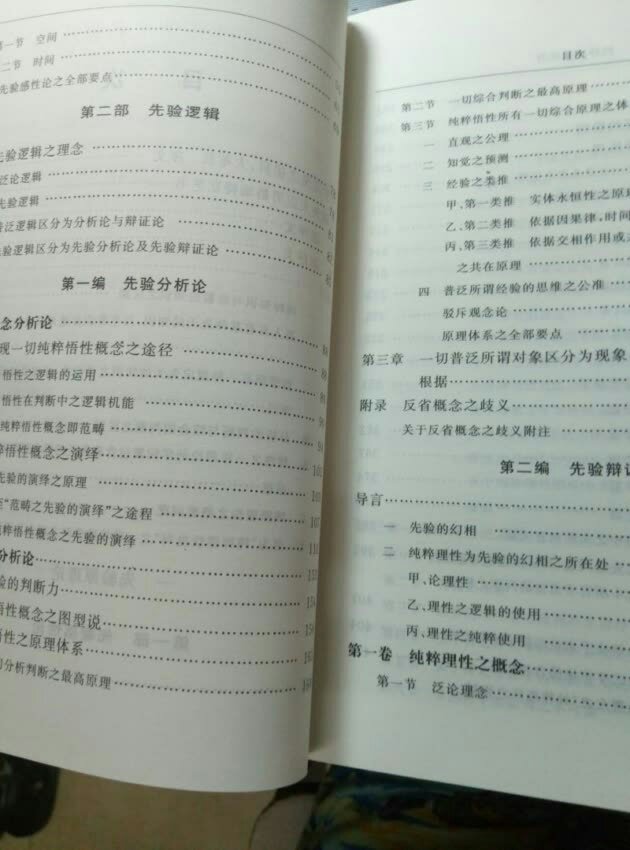 第一节 空间
二节 时间
先验感性论之全部要点
第二部 先验逻辑
先验逻辑之理念
泛论逻辑
先验逻辑
普泛逻辑区分为分析论与辩证论
先验逻辑区分为先验分析论及先验辩证论 82
第一编 先验分析论
念分析论 88
现一切纯粹悟性概念之途径 88
悟性之逻辑的运用 89
悟性在判断中之逻辑机能 90
纯粹悟性概念即范畴 94
粹悟性概念之演绎 101
先验的演绎之原理
至“范畴之先验的演绎”之途程 107
纯粹悟性概念之先验的演绎 111
分析论
验的判断力 154
悟性概念之图型说
悟性之原理体系
切分析判断之最高原理
目次
第二节 一切综合判断之最高原理
第三节 纯粹悟性所有一切综合原理之体
一 直观之公理
二 知觉之预测
三 经验之类推
甲、第一类推 实体永恒性之原理
乙、第二类推 依据因果律,时间
丙、第三类推 依据交相作用或
之共在原理
四 普泛所谓经验的思维之公准
驳斥观念论
原理体系之全部要点
第三章 一切普泛所谓对象区分为现象
根据
附录 反省概念之歧义
关于反省概念之歧义附注
第二编 先验辩证
导言
一 先验的幻相
二 纯粹理性为先验的幻相之所在处
甲、论理性
乙、理性之逻辑的使用
丙、理性之纯粹使用
第一卷 纯粹理性之概念
第一节 泛论理念